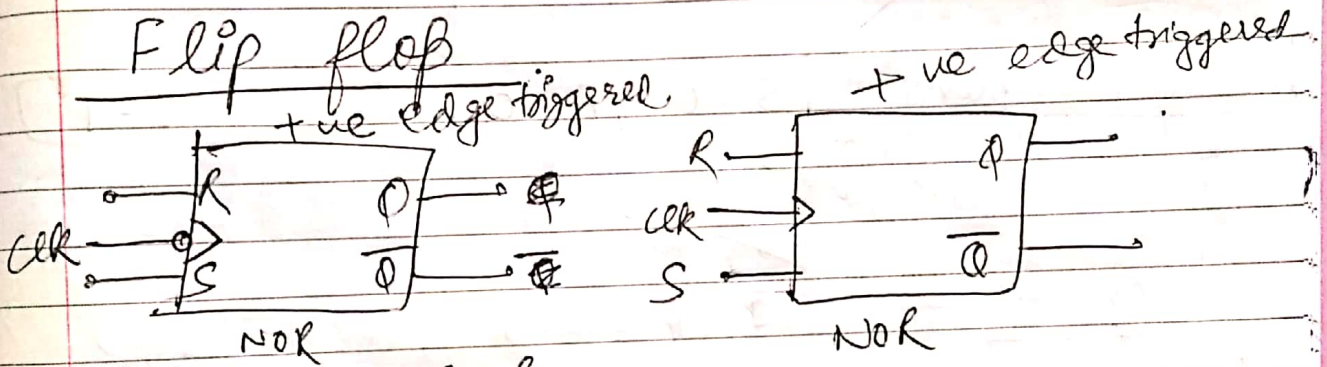 Flip flop
+ve edge triggered
+ve edge triggered
R Q
CLK
S Q̅ Q̅
NOR
R Q
CLK
S Q̅
NOR